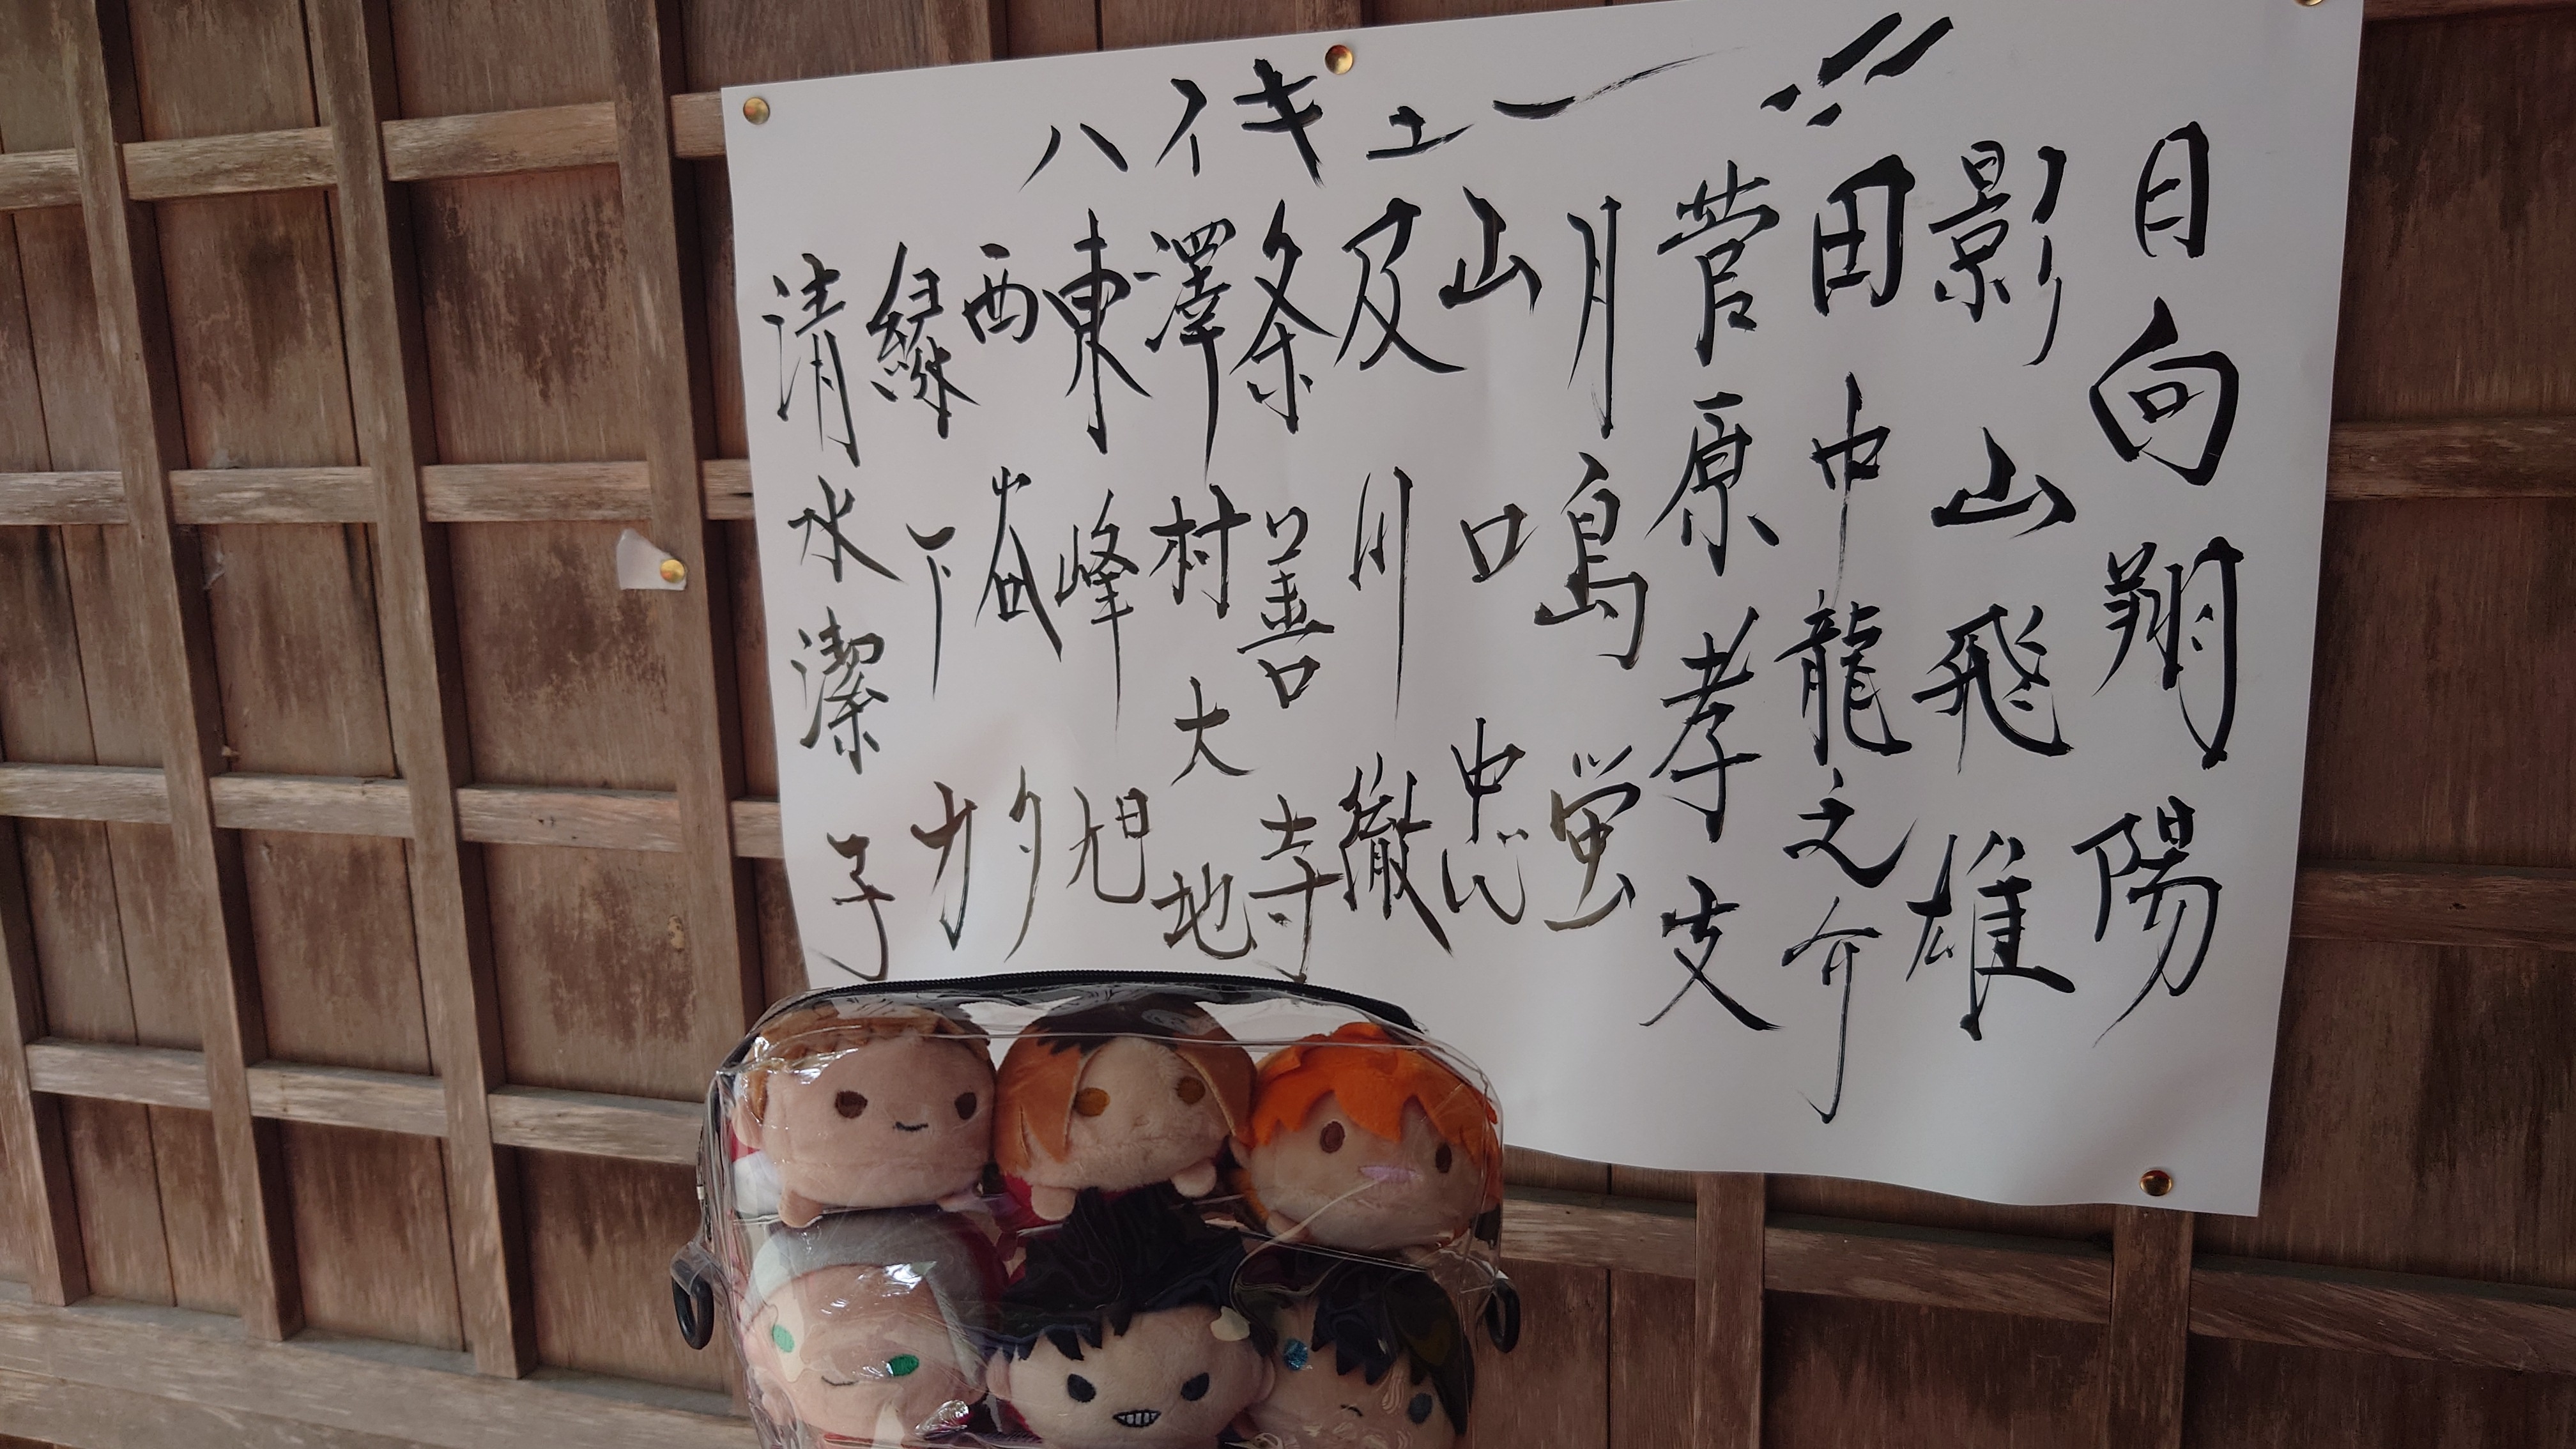 ハイキュー!!
日向翔陽
影山飛雄
田中龍之介
菅原孝支
月島蛍
山口忠
及川徹
条善寺
澤村大地
東峰旭
西谷夕
縁下力
清水潔子